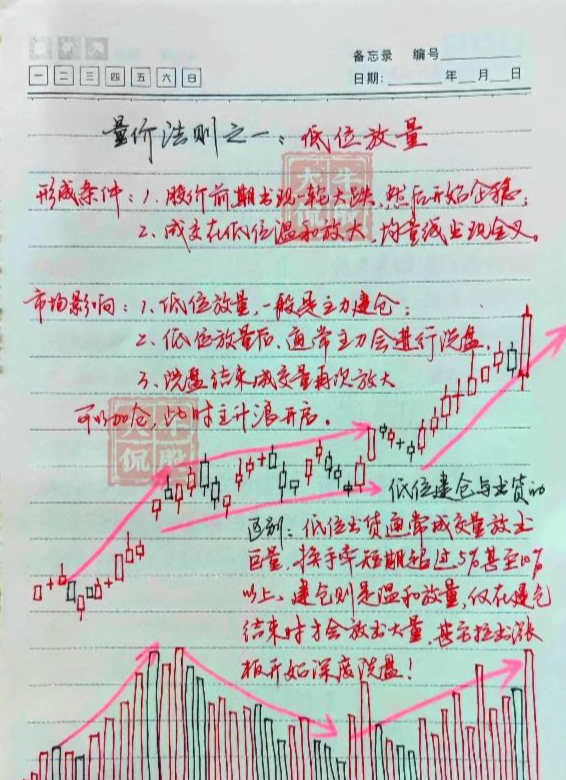 备忘录 编号
一 二 三 四 五 六 日
日期: 年 月 日
量价法则之一：低位放量
大牛侃股
形成条件：1、股价前期出现一轮大跌，然后开始企稳；
2、成交在低位温和放大，均量线出现金叉。
市场影响：1、低位放量，一般是主力建仓；
2、低位放量后，通常主力会进行洗盘，
3、洗盘结束成交量再次放大
可以加仓，此时主升浪开启。
大牛侃股
低位建仓与出货的
区别：低位出货通常成交量放出
巨量，换手率短期超过5%甚至10%
以上、建仓则是温和放量，仅在建仓
结束时才会放出大量，甚至拉出涨
板开始深度洗盘！